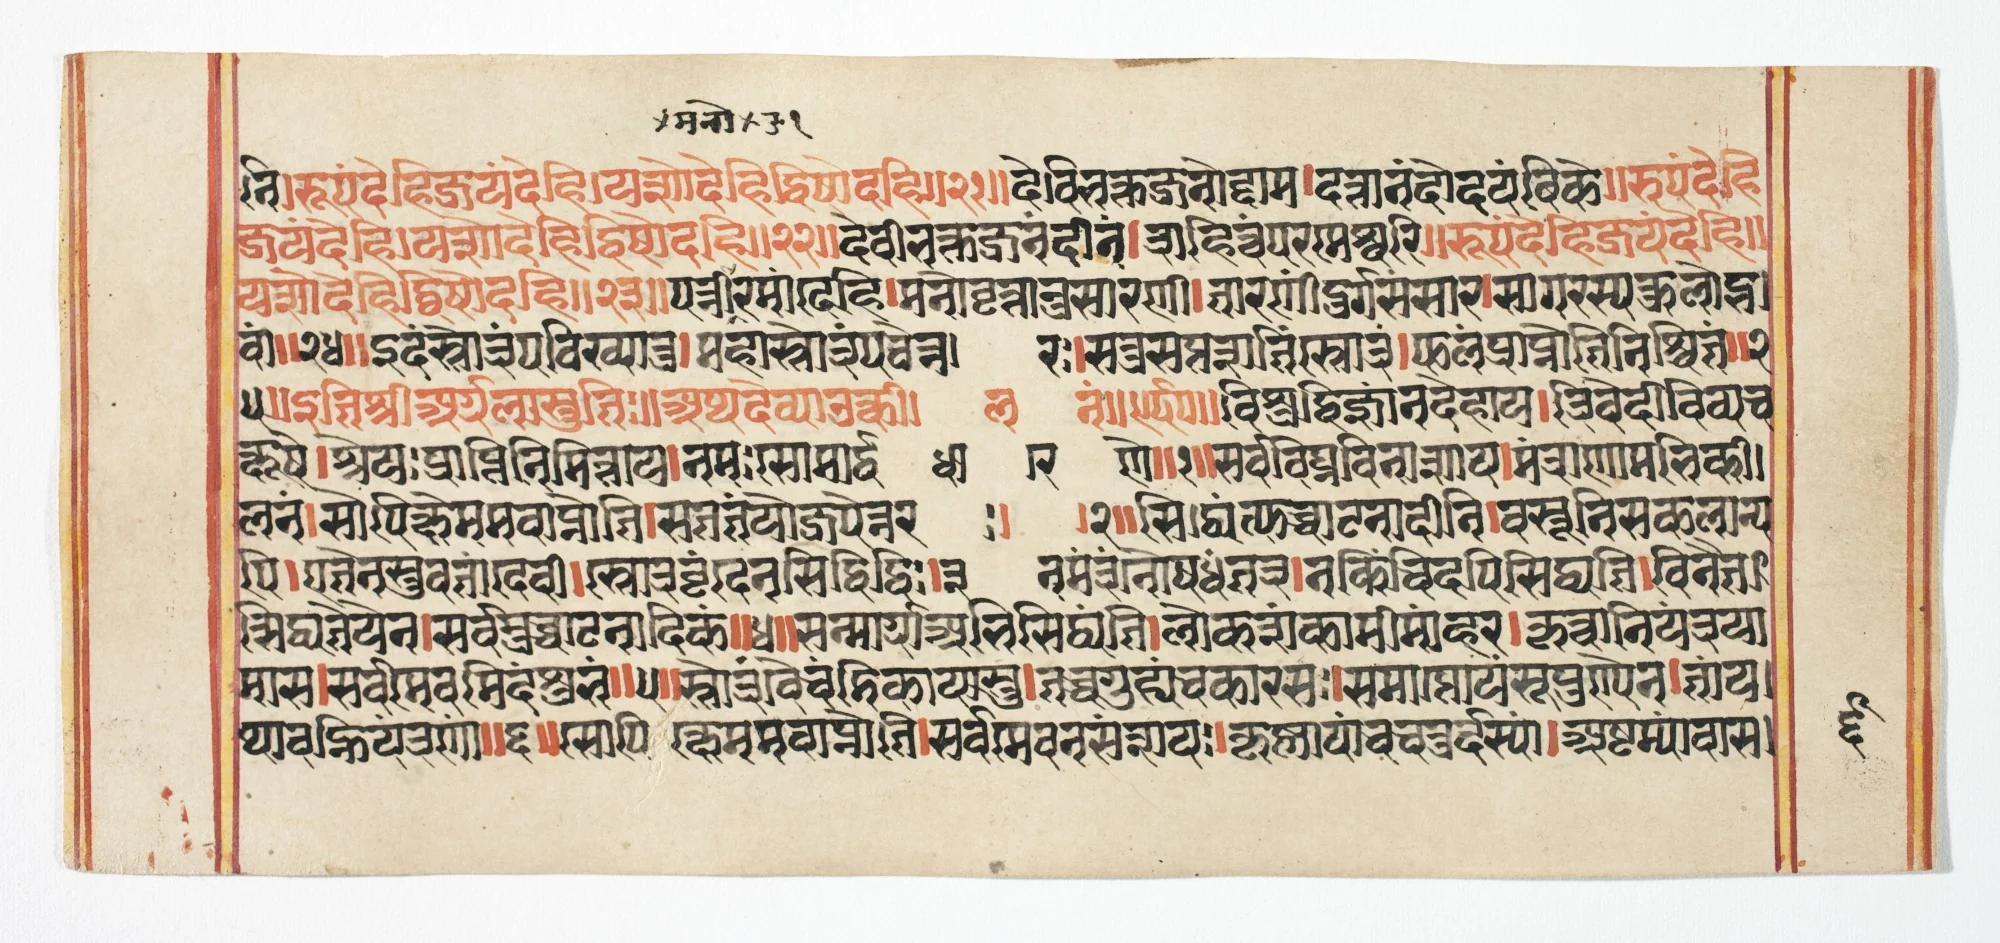 ×मनो×ऽ१
नि।रूपंदेहिजयंदेहि।यशोदेहिद्विषोदहि॥२१॥देविभक्तजनोद्दाम।दत्तानंदोदयंविके॥रुपंदेहि
जयंदेहि।यशोदेहिद्विषोदहि॥२२॥देवीभक्तजनंदीनं।त्राहित्वंपरमेश्वरि॥रूपंदेहिजयंदेहि॥
यशोदेहिद्विषोदहि॥२३॥पत्नीरमांदेहि।मनोवृत्तानुसारणी।तारणींदुर्गसंसार।सागरस्यकुलोद्भ।
वां॥२४॥इदंस्तोत्रंपविख्यात्रु।महास्तोत्रंपवेन्न। रः।सत्रसप्तशतिंस्तोत्रं।फलंप्राप्नोतिनिश्चितं॥२
५॥इतिश्रीअर्गलास्तुतिः॥अथदेव्यानकी। ल नं॥ विशुद्धिज्ञानदेहाय।त्रिवेदीविव्यच
क्रूषे।श्रेयःप्राप्तिनिमित्ताय।नमःसोमार्द्द धा र णे॥१॥सर्वविघ्नविनाशाय।मंत्राणामभिकी।
लनं।सोपिक्षेममवाप्नोति।सततंयोजपेन्नर ः। ।२॥सिद्ध्यंत्फच्चाटनादीनि।वस्तूनिसकलान्य
पि।एतेनस्तुवतांदेवी।स्तोत्रवृंदेनसिद्धिद्धिः।३ नमंत्रंनौषधंतत्र।नकिंविदपिसिद्ध्यति।विनैता
त्सिद्ध्यतेयेन।सर्वमुच्चाटनादिकं॥४॥सन्मार्गाअभिसिद्ध्यंति।लोकशंकामीमांहर।कृत्वानियंत्रया
मास।सर्वमेवमिदंशुभं॥५॥स्तोत्रंवैचंडिकायास्तु।तच्चगुह्यंचकारसः।समाप्तायंसूपुण्येन।तांय।
थावन्नियंत्रणां॥६॥सोपि क्षेममवाप्नोति।सर्वमेवनसंशयः।कृष्णायांवचतुर्दश्यां।अष्टम्यांवास।
६